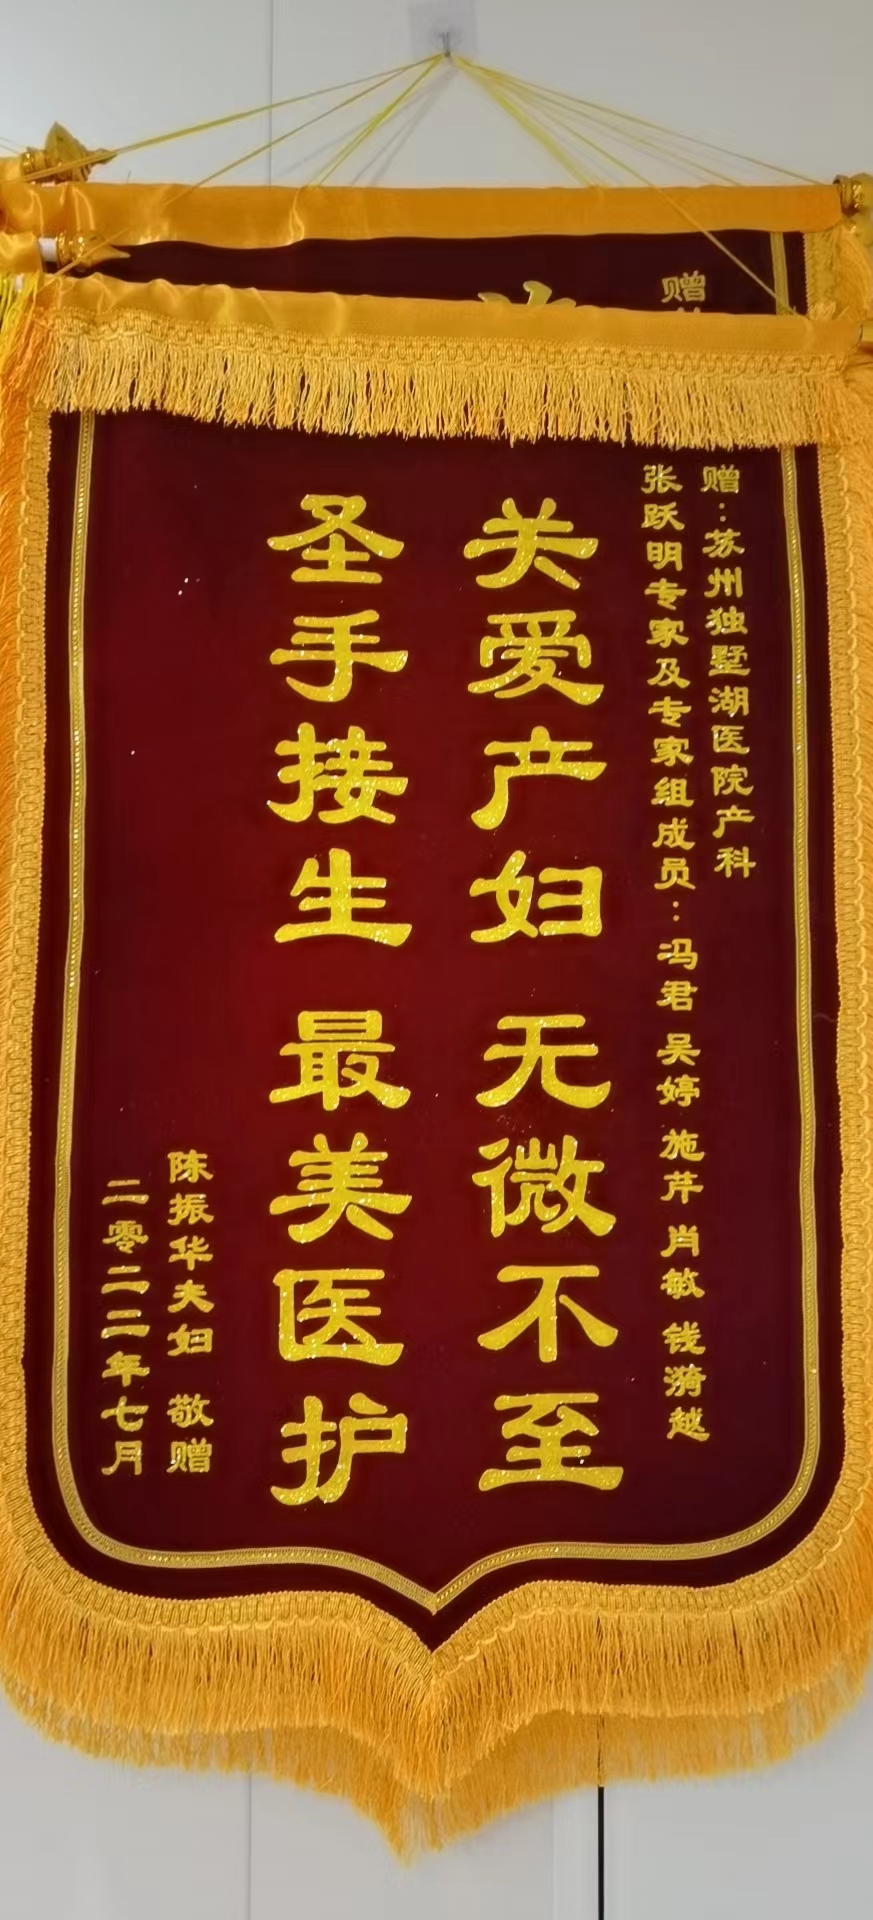 赠
赠：苏州独墅湖医院产科
张跃明专家及专家组成员：冯君 吴婷 施芹 肖敏 钱漪越
关爱产妇 无微不至
圣手接生 最美医护
陈振华夫妇 敬赠
二零二二年七月